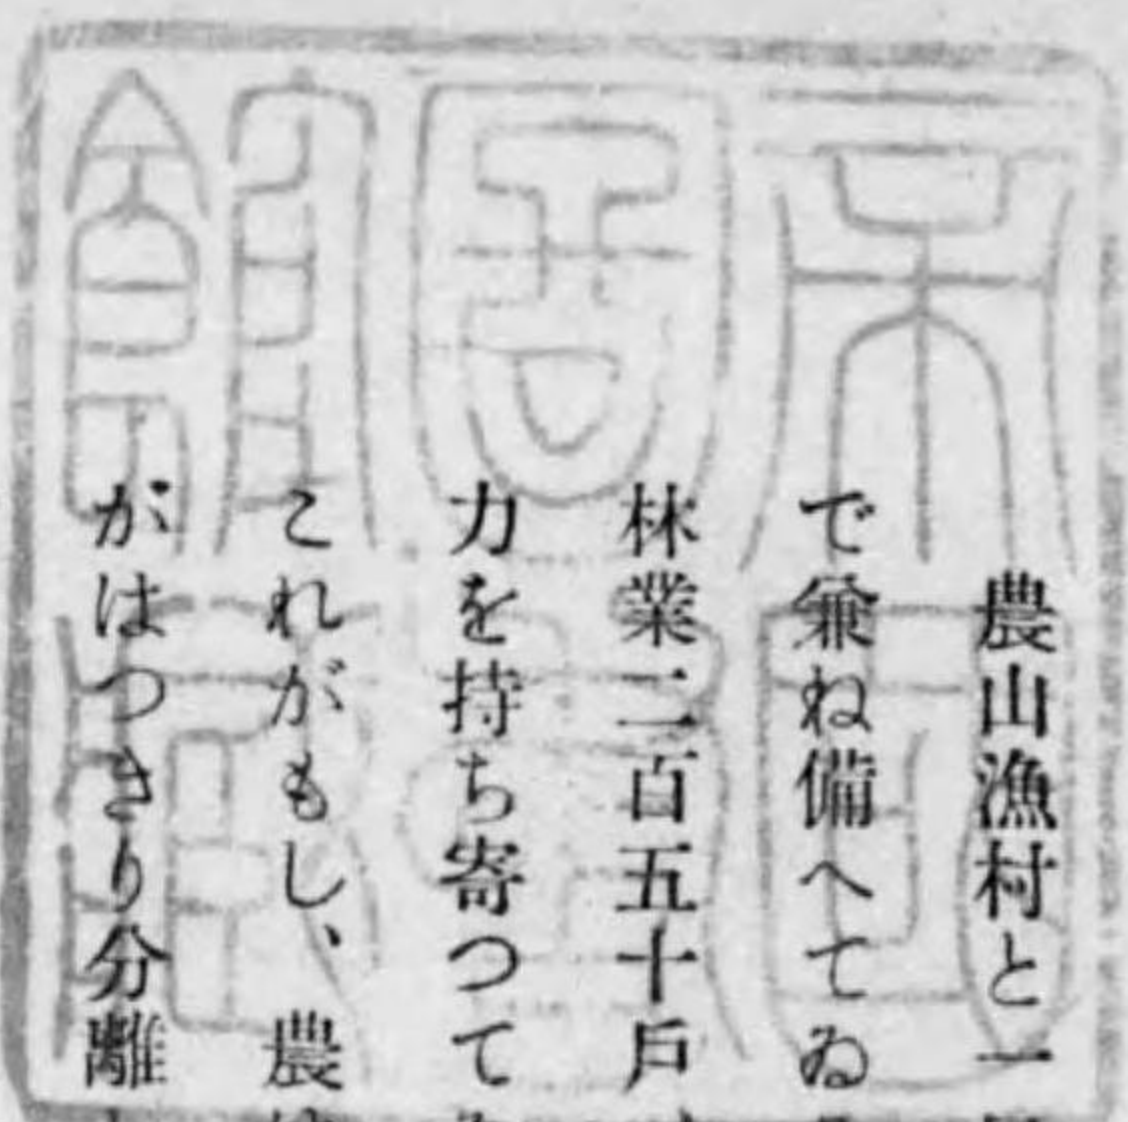 農山漁村と一
で兼ね備へてゐ
林業二百五十戶
力を持ち寄つて
これがもし、農
がはつきり分離